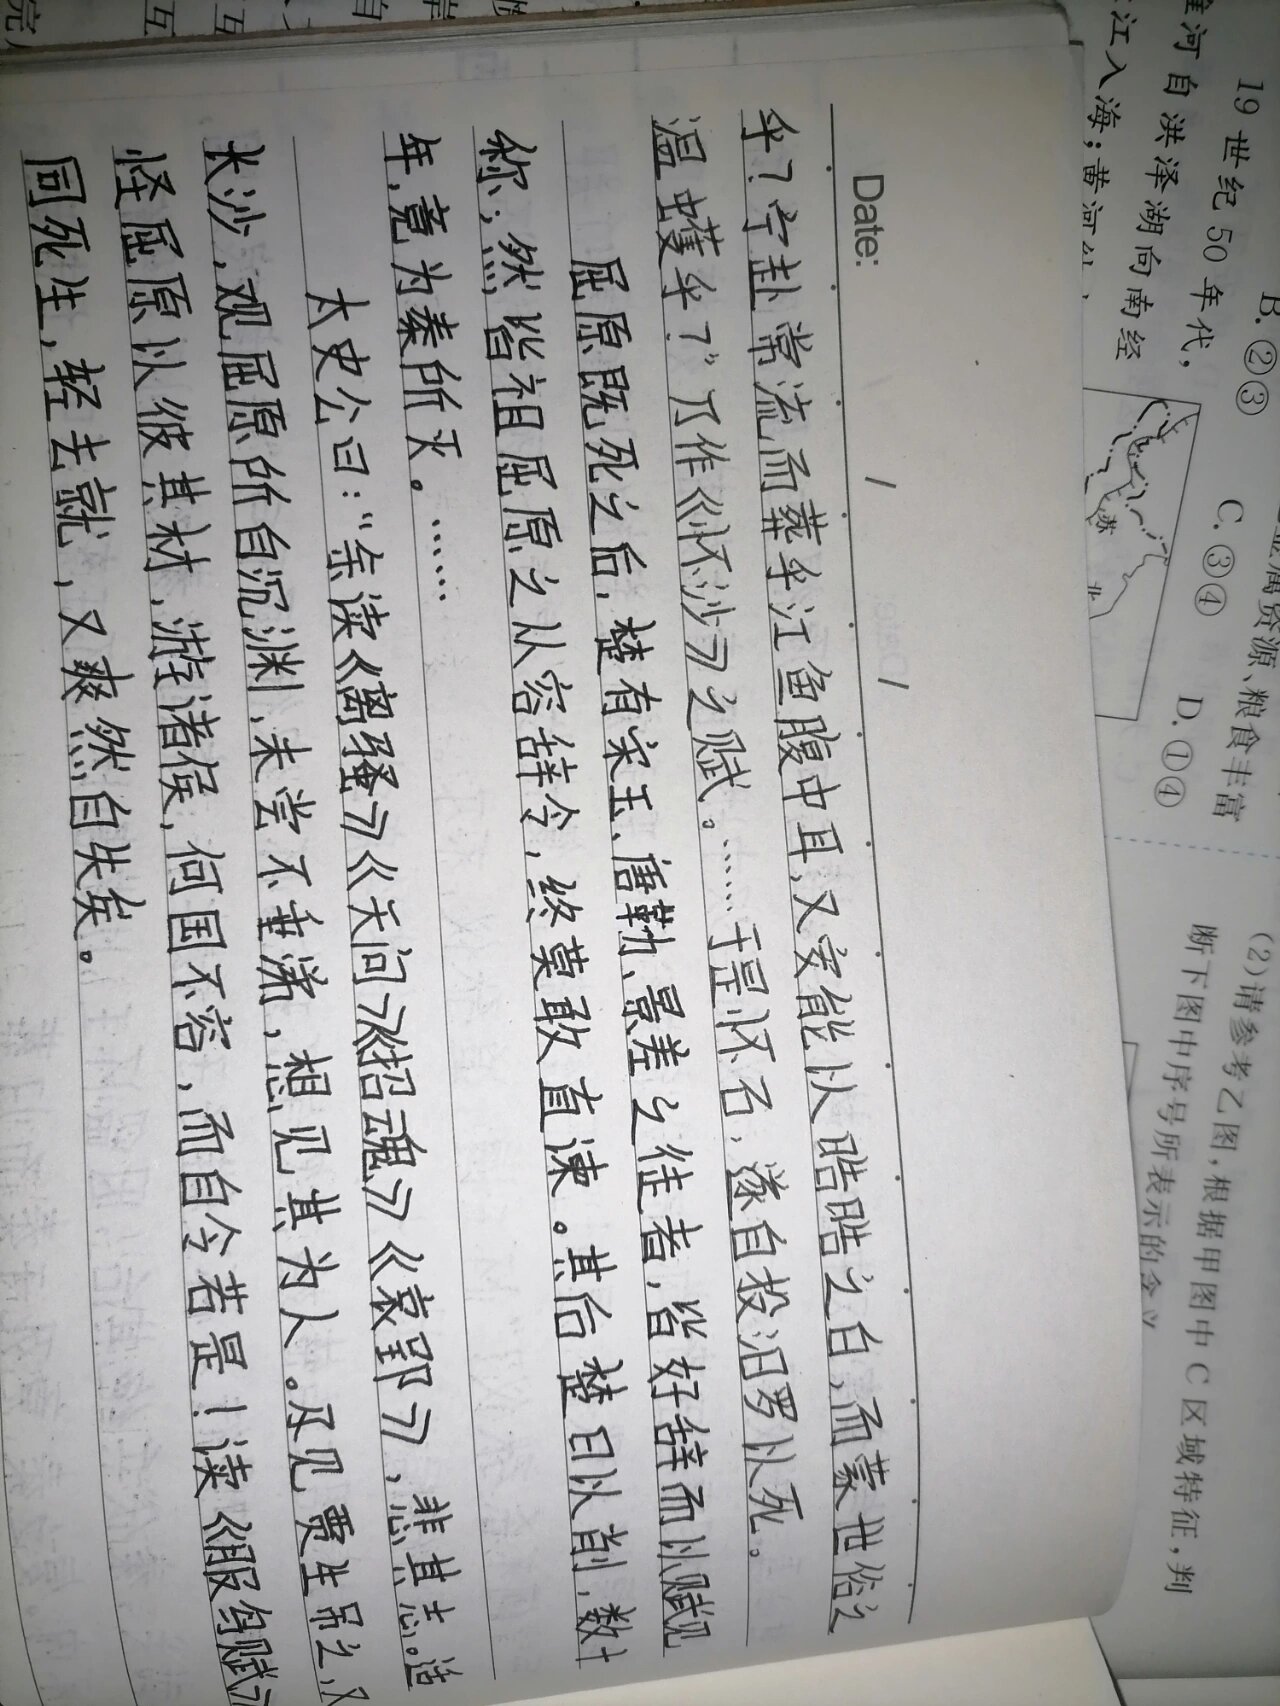 19世纪50年代,
淮河自洪泽湖向南经
江入海;黄河
B.②③
C.③④
D.①④
金属资源、粮食丰富
苏
北
(2)请参考乙图,根据甲图中C区域特征,判
断下图中序号所表示的含义
Date: / /
乎?宁赴常流而葬乎江鱼腹中耳,又安能以皓皓之白,而蒙世俗之
温蠖乎?”乃作《怀沙》之赋。……于是怀石,遂自投汨罗以死。
屈原既死之后,楚有宋玉、唐勒、景差之徒者,皆好辞而以赋见
称;然皆祖屈原之从容辞令,终莫敢直谏。其后楚日以削,数十
年,竟为秦所灭。……
太史公曰:“余读《离骚》《天问》《招魂》《哀郢》,悲其志。适
长沙,观屈原所自沉渊,未尝不垂涕,想见其为人。及见贾生吊之,又
怪屈原以彼其材,游诸侯,何国不容,而自令若是!读《服鸟赋》
同死生,轻去就,又爽然自失矣。